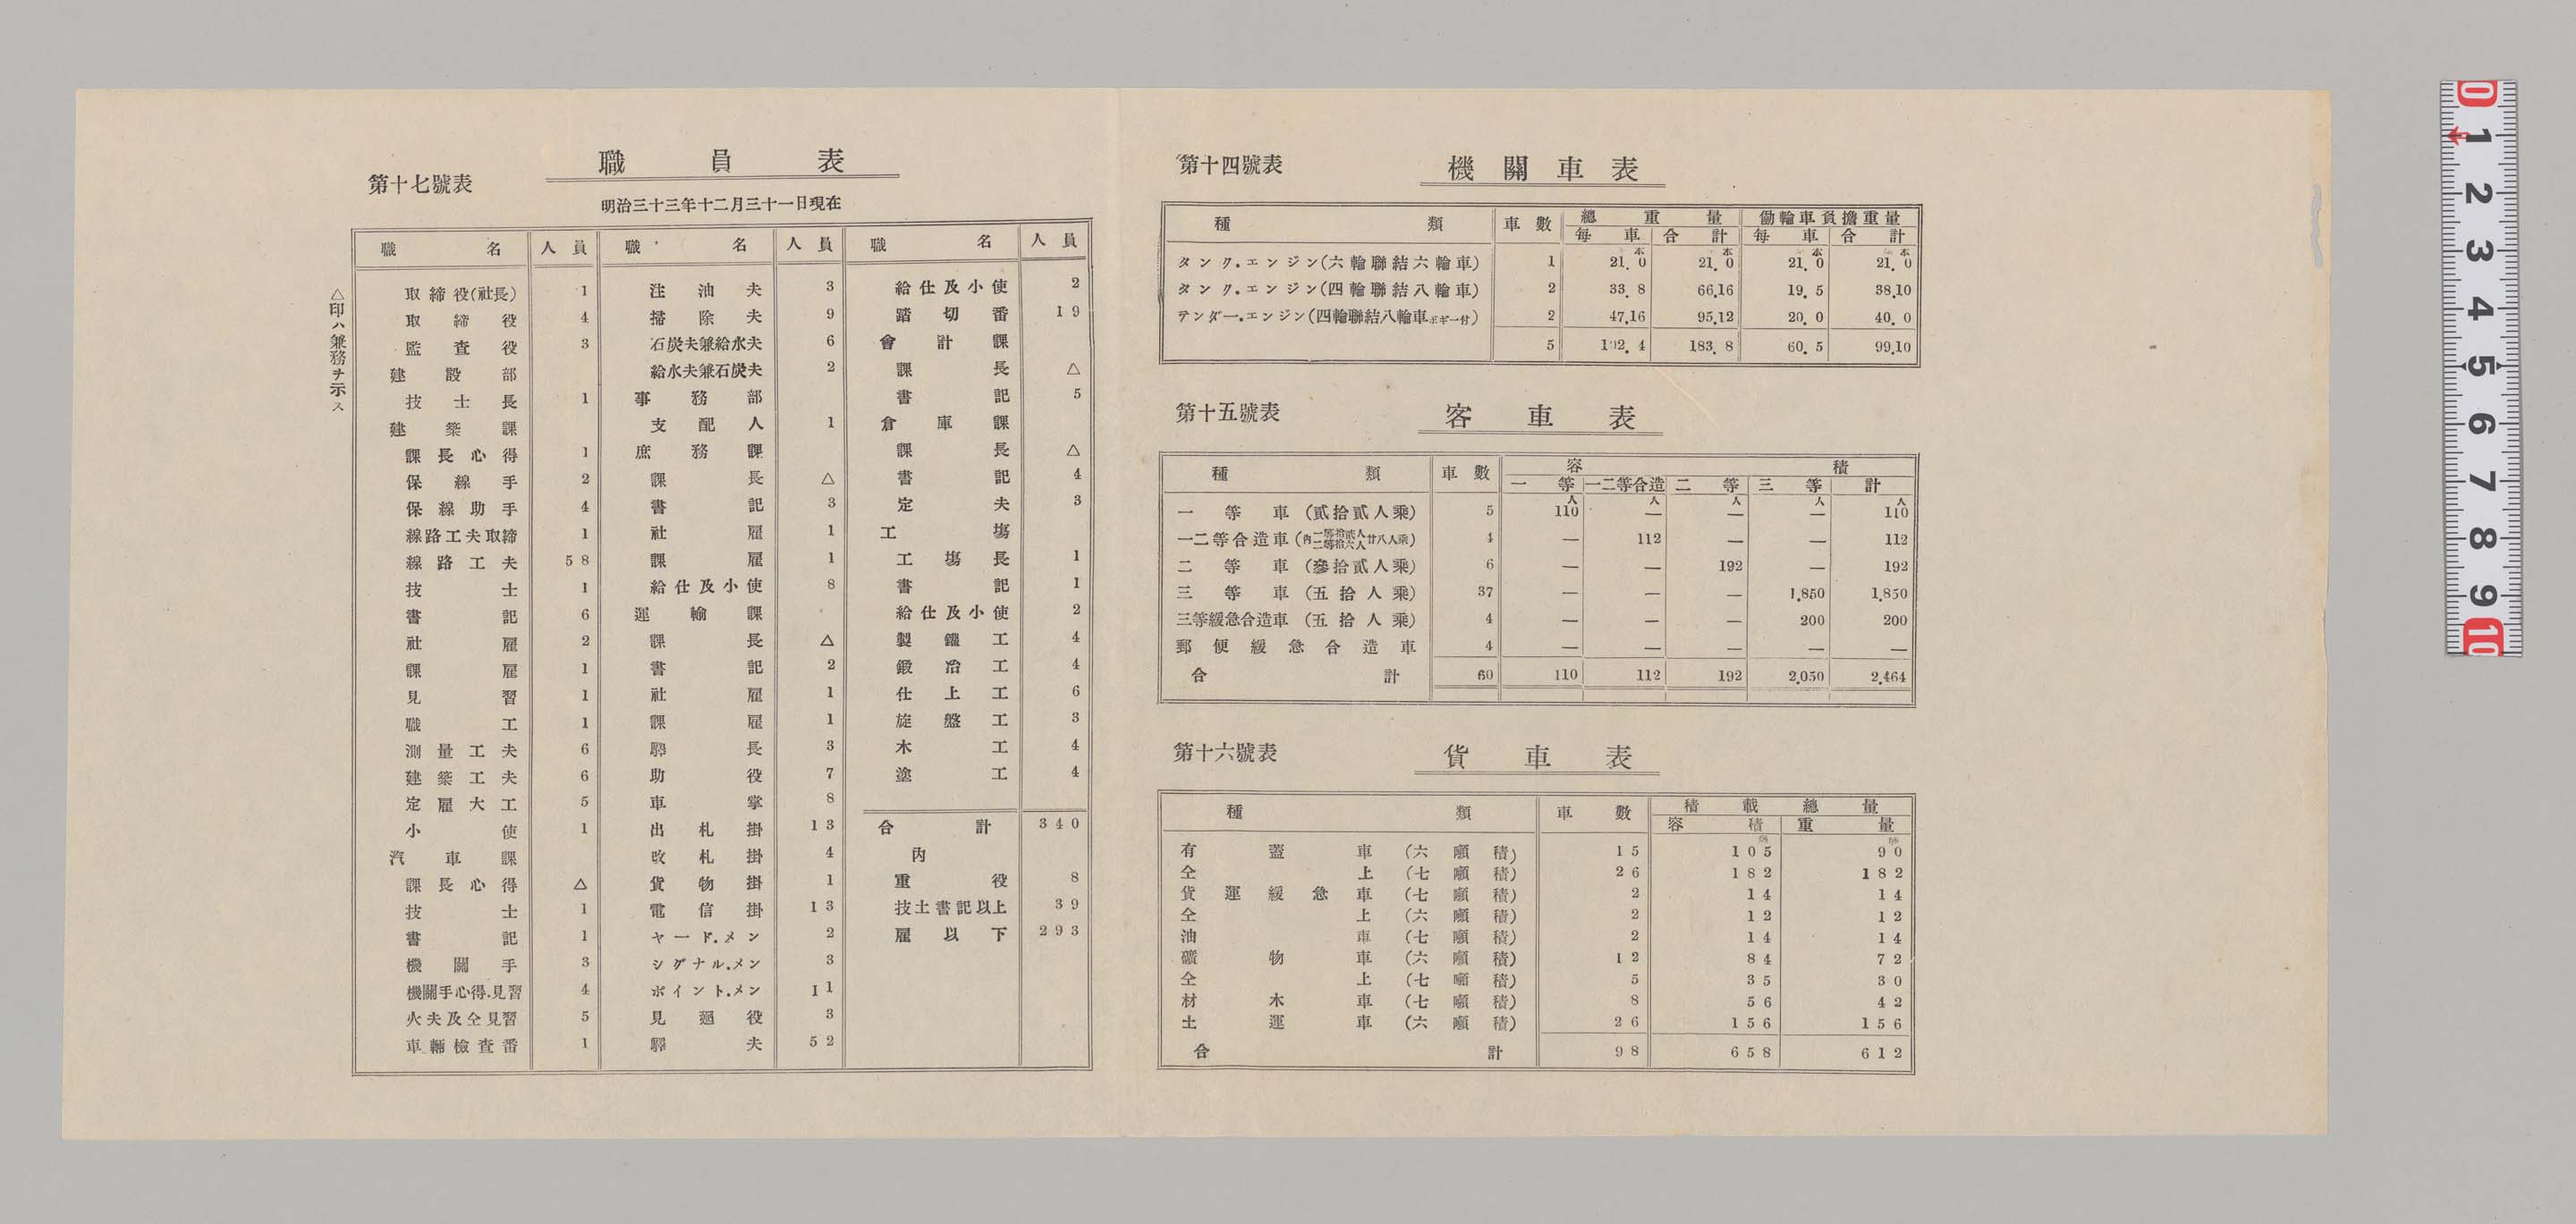 第十四號表 機關車表
種類 車數 總重量 働輪車負擔重量
每車 合計 每車 合計
タンク.エンジン(六輪聯結六輪車) 1 21.0 21.0 21.0 21.0
タンク.エンジン(四輪聯結八輪車) 2 33.8 66.16 19.5 38.10
テンダー.エンジン(四輪聯結八輪車ボギー付) 2 47.16 95.12 20.0 40.0
5 102.4 183.8 60.5 99.10
第十五號表 客車表
種類 車數 容積
一等 一二等合造 二等 三等 計
人 人 人 人 人
一等車(貳拾貳人乘) 5 110 — — — 110
一二等合造車(內一等拾貳人二等拾六人廿八人乘) 4 — 112 — — 112
二等車(參拾貳人乘) 6 — — 192 — 192
三等車(五拾人乘) 37 — — — 1.850 1.850
三等緩急合造車(五拾人乘) 4 — — — 200 200
郵便緩急合造車 4 — — — — —
合計 60 110 112 192 2.050 2.464
第十六號表 貨車表
種類 車數 積載總量
容積 重量
有蓋車(六噸積) 15 105 90
仝上(七噸積) 26 182 182
貨運緩急車(七噸積) 2 14 14
仝上(六噸積) 2 12 12
油車(七噸積) 2 14 14
礦物車(六噸積) 12 84 72
仝上(七噸積) 5 35 30
材木車(七噸積) 8 56 42
土運車(六噸積) 26 156 156
合計 98 658 612
第十七號表 職員表
明治三十三年十二月三十一日現在
△印ハ兼務ヲ示ス
職名 人員 職名 人員 職名 人員
取締役(社長) 1
取締役 4
監査役 3
建設部
技士長 1
建築課
課長心得 1
保線手 2
保線助手 4
線路工夫取締 1
線路工夫 58
技士 1
書記 6
社雇 2
課雇 1
見習 1
職工 1
測量工夫 6
建築工夫 6
定雇大工 5
小使 1
汽車課
課長心得 △
技士 1
書記 1
機關手 3
機關手心得.見習 4
火夫及仝見習 5
車輛檢查番 1
注油夫 3
掃除夫 9
石炭夫兼給水夫 6
給水夫兼石炭夫 2
事務部
支配人 1
庶務課
課長 △
書記 3
社雇 1
課雇 1
給仕及小使 8
運輸課
課長 △
書記 2
社雇 1
課雇 1
驛長 3
助役 7
車掌 8
出札掛 13
改札掛 4
貨物掛 1
電信掛 13
ヤード.メン 2
シグナル.メン 3
ポイント.メン 11
見廻役 3
驛夫 52
給仕及小使 2
踏切番 19
會計課
課長 △
書記 5
倉庫課
課長 △
書記 4
定夫 3
工塲
工塲長 1
書記 1
給仕及小使 2
製鑵工 4
鍛冶工 4
仕上工 6
旋盤工 3
木工 4
塗工 4
合計 340
內
重役 8
技士書記以上 39
雇以下 293
0 1 2 3 4 5 6 7 8 9 10